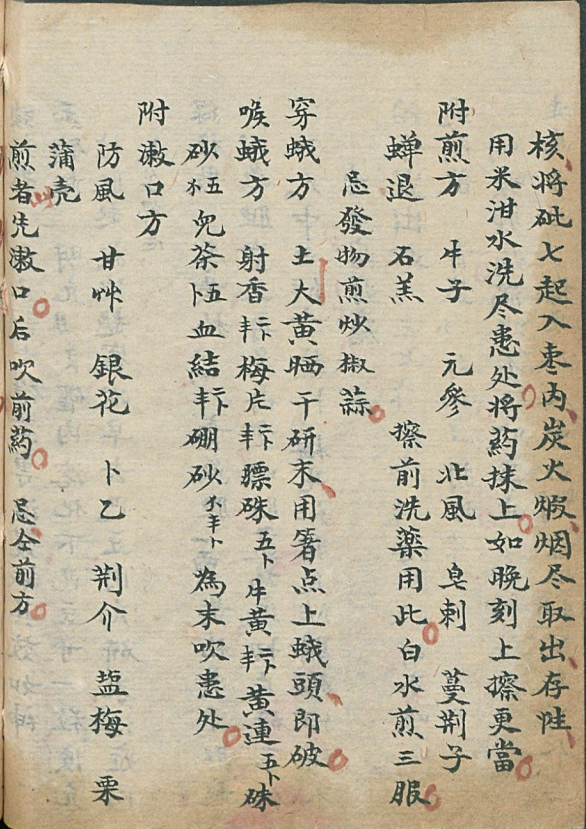 核將砒七起入枣內炭火煅烟尽取出存性
用米泔水洗尽患处将药抹上如晚刻上擦更當
附煎方 牛子 元參 北風 皂刺 蔓荆子
蟬退 石羔 擦前洗藥用此白水煎三服
忌發物煎炒椒蒜
穿蛾方 土大黃晒干研末用箸点上蛾頭即破
喉蛾方 射香 梅片 膘硃五卜 牛黃 黃連五卜 硃
砂 兒茶 血結 硼砂 為末吹患处
附漱口方
防風 甘艸 銀花 卜乙 荆介 盐梅 栗
蒲壳
煎者先漱口后吹前药 忌仝前方